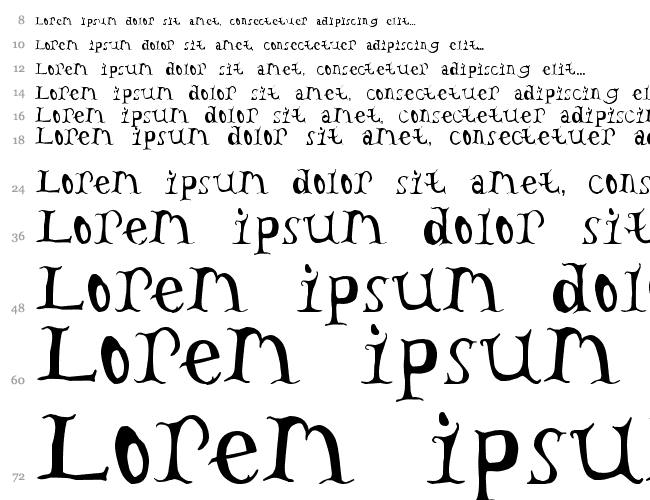 8 Lorem ipsum dolor sit amet, consectetuer adipiscing elit...
10 Lorem ipsum dolor sit amet, consectetuer adipiscing elit...
12 Lorem ipsum dolor sit amet, consectetuer adipiscing elit...
14 Lorem ipsum dolor sit amet, consectetuer adipiscing el
16 Lorem ipsum dolor sit amet, consectetuer adipiscin
18 Lorem ipsum dolor sit amet, consectetuer ad
24 Lorem ipsum dolor sit amet, cons
36 Lorem ipsum dolor sit
48 Lorem ipsum dol
60 Lorem ipsum
72 Lorem ipsu